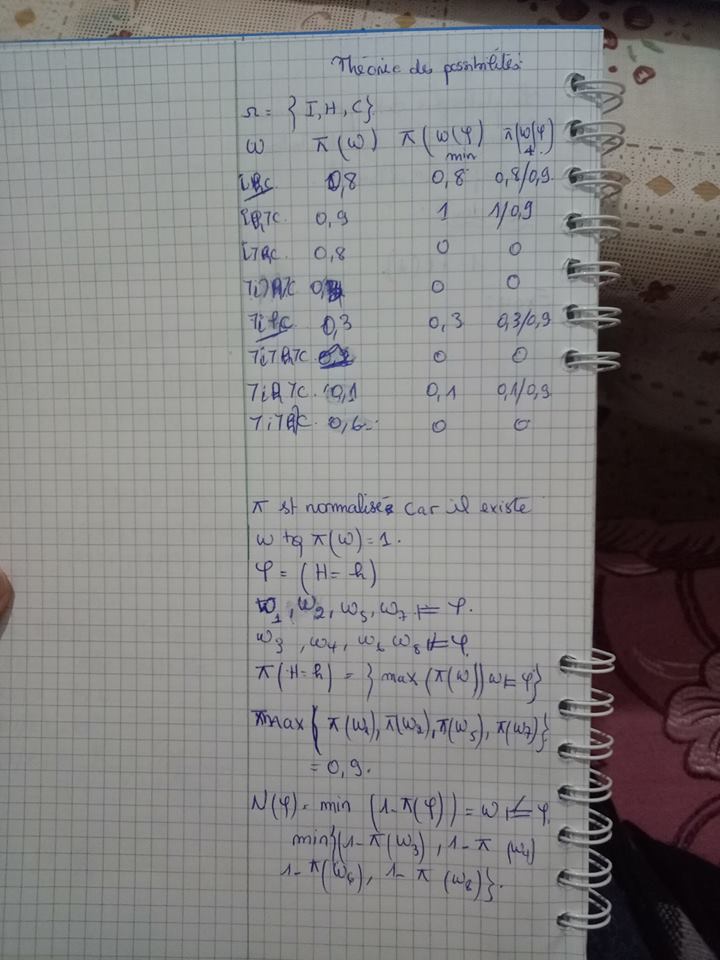 Théorie des possibilités
Ω = { I, H, C }
ω π(ω) π(ω|φ) π(ω|φ)
min
ihc 0,8 0,8 0,8/0,9
ih¬c 0,9 1 1/0,9
i¬hc 0,8 0 0
0 0
¬ihc 0,3 0,3 0,3/0,9
¬i¬h¬c 0 0
¬ih¬c 0,1 0,1 0,1/0,9
¬i¬hc 0,6 0 0
π st normalisée car il existe
ω tq π(ω) = 1.
φ = (H = h)
ω1, ω2, ω5, ω7 ⊨ φ.
ω3, ω4, ω6 ω8 ⊭ φ.
π(H = h) = { max (π(ω)) ω ⊨ φ }
max { π(ω1), π(ω2), π(ω5), π(ω7) }
= 0,9.
N(φ) = min (1 - π(φ)) = ω ⊭ φ.
min {(1 - π(ω3), 1 - π (ω4)
1 - π(ω6), 1 - π (ω8) }.